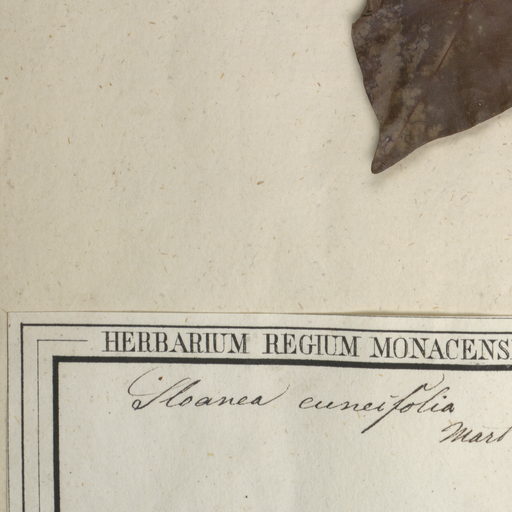 HERBARIUM REGIUM MONACENS
Sloanea cuneifolia
Mart